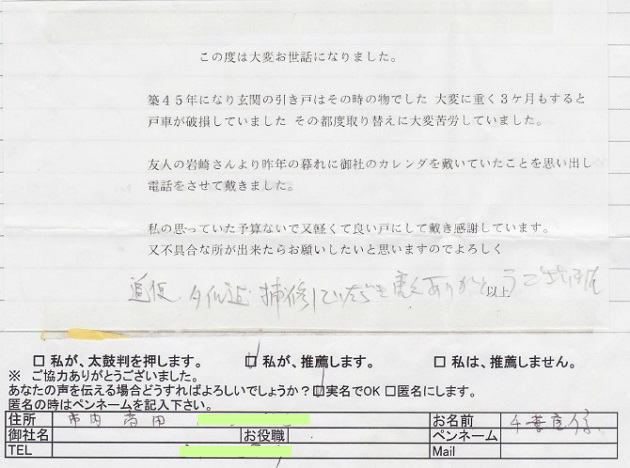 この度は大変お世話になりました。
築４５年になり玄関の引き戸はその時の物でした 大変に重く３ケ月もすると
戸車が破損していました その都度取り替えに大変苦労していました。
友人の岩崎さんより昨年の暮れに御社のカレンダを戴いていたことを思い出し
電話をさせて戴きました。
私の思っていた予算ないで又軽くて良い戸にして戴き感謝しています。
又不具合な所が出来たらお願いしたいと思いますのでよろしく
追伸 タイル迄 補修していただき ありがとうございます
以上
□ 私が、太鼓判を押します。 □ 私が、推薦します。 □ 私は、推薦しません。
※ ご協力ありがとうございました。
あなたの声を伝える場合どうすればよろしいでしょうか？□実名でOK □匿名にします。
匿名の時はペンネームを記入下さい。
住所 市内 お名前 千葉
御社名 お役職 ペンネーム
TEL Mail